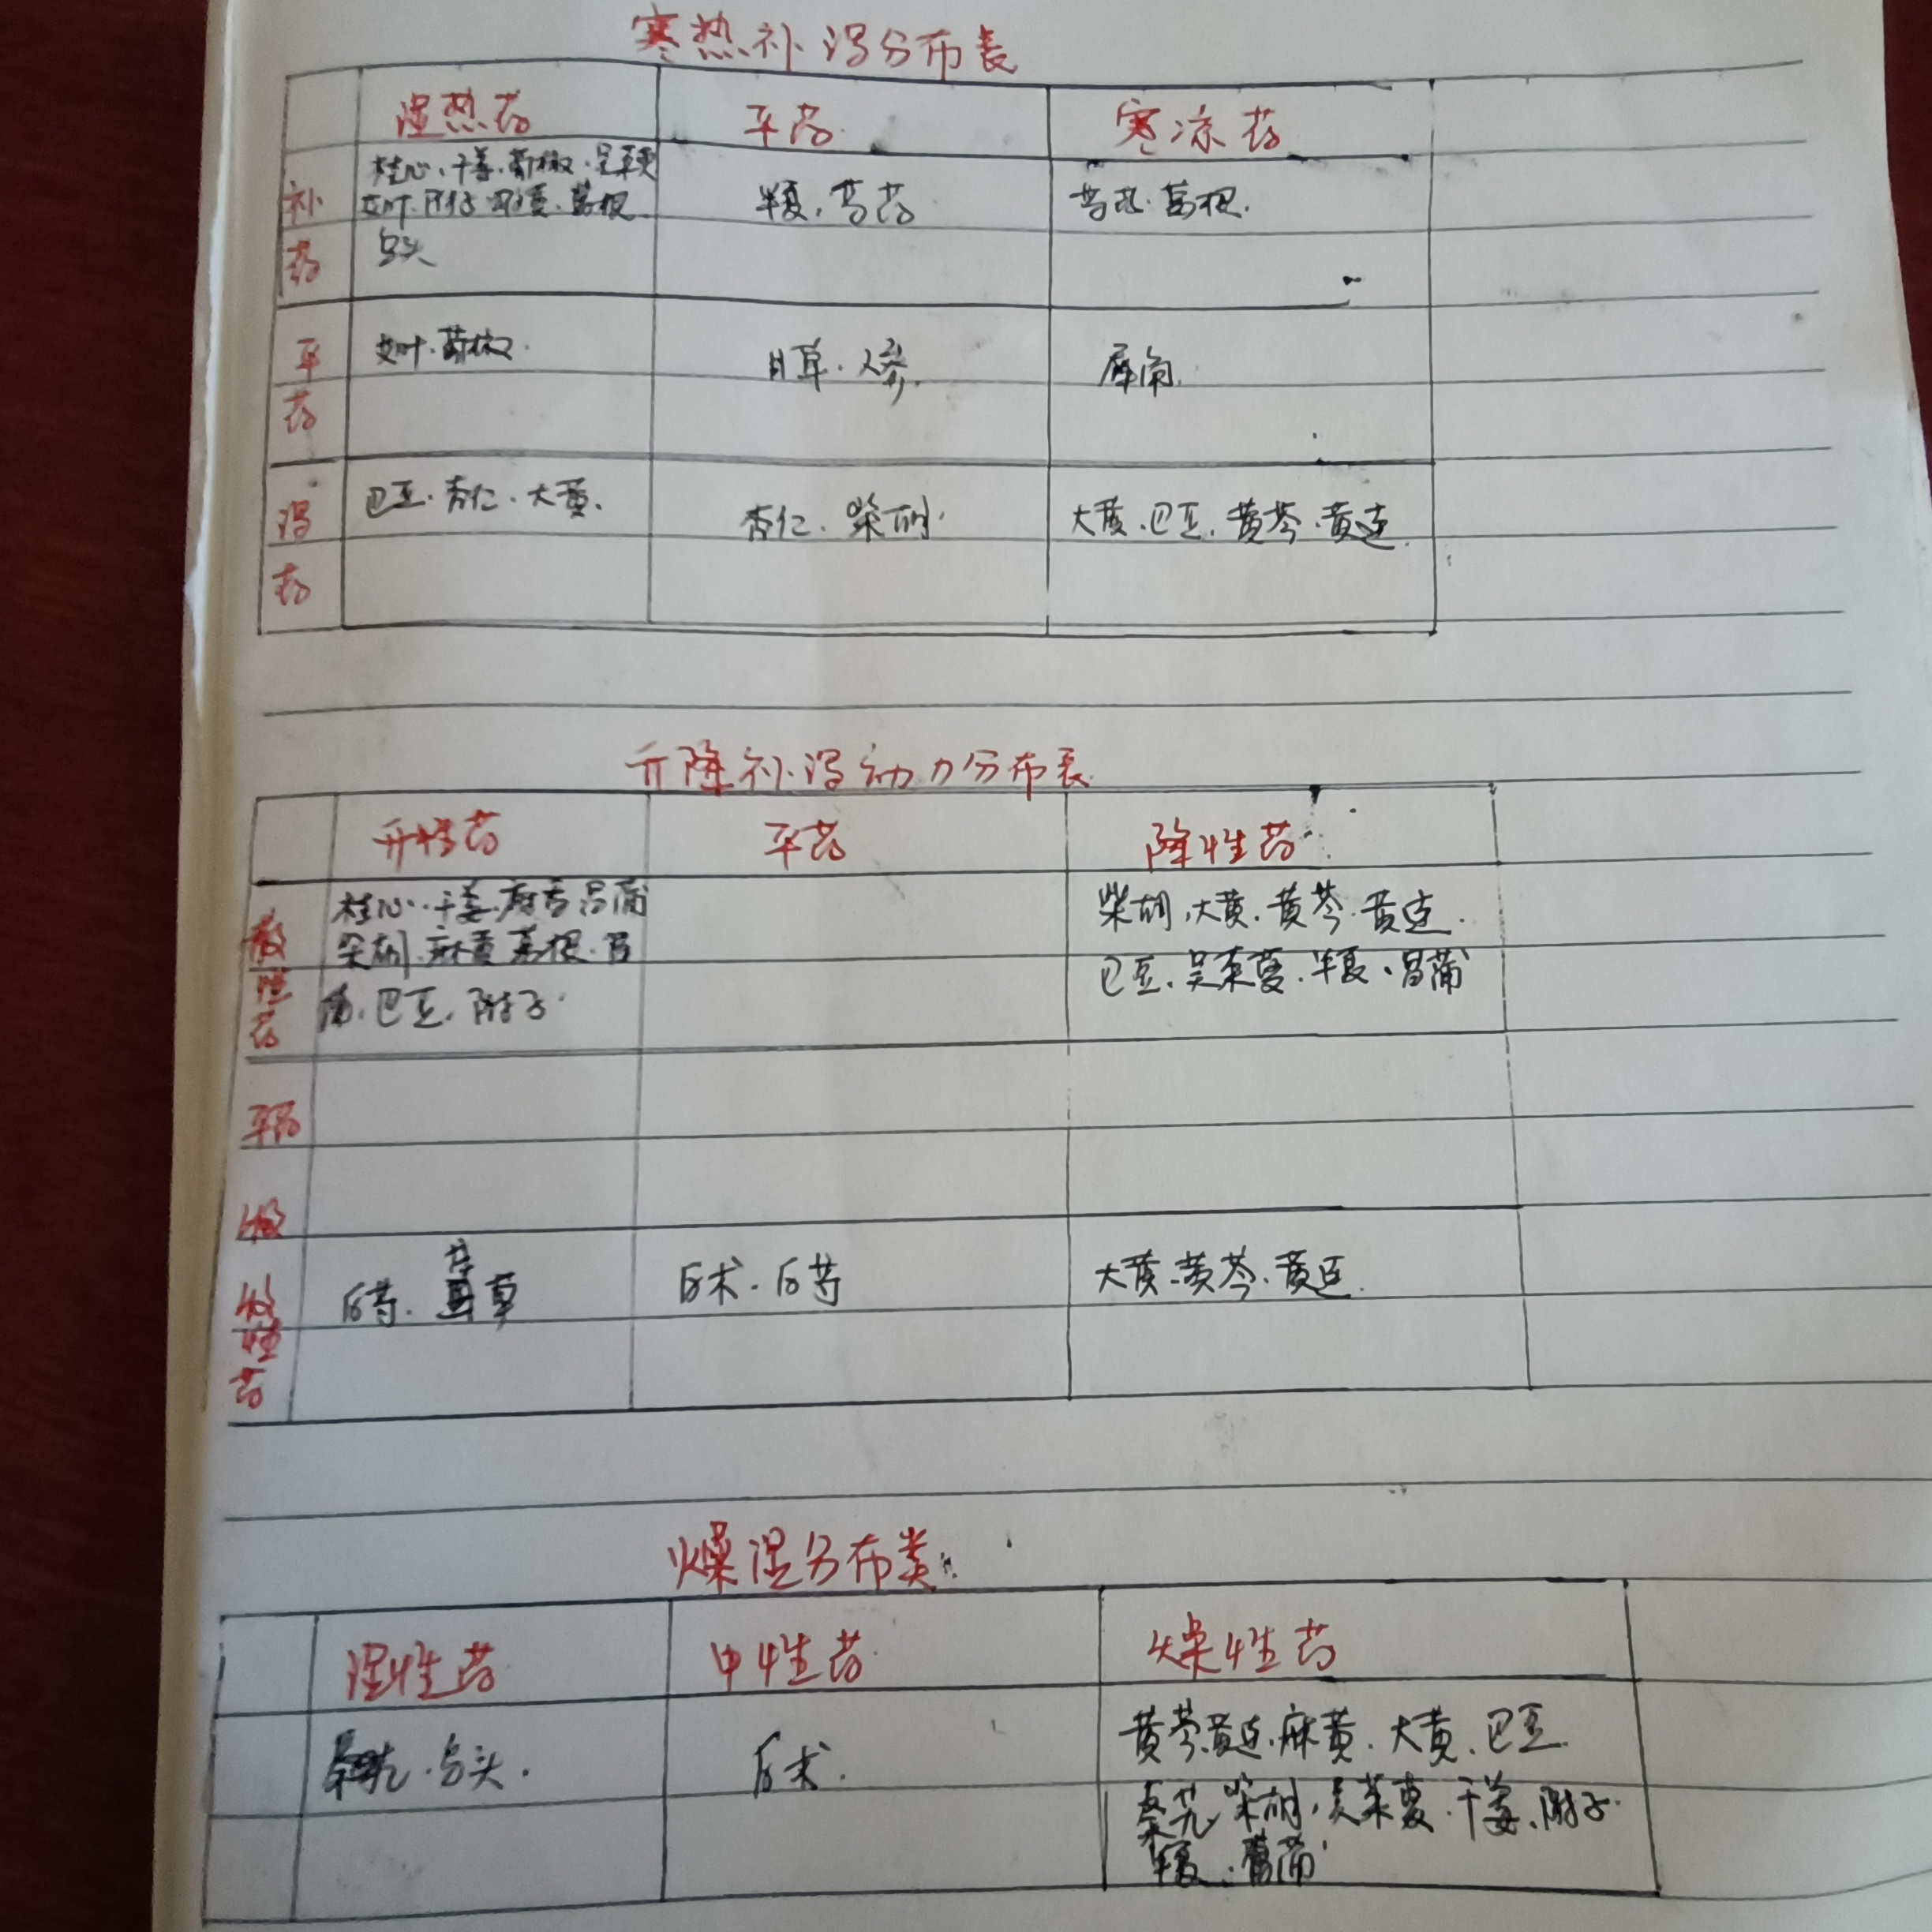 寒热补泻分布表
温热药 平药 寒凉药
补药
桂心、干姜、蜀椒、吴茱萸
艾叶、附子、半夏、葛根
乌头
半夏、芍药
芍药、葛根
平药
艾叶、蜀椒
甘草、人参
犀角
泻药
巴豆、杏仁、大黄
杏仁、柴胡
大黄、巴豆、黄芩、黄连
升降补泻动力分布表
升性药 平药 降性药
散性药
桂心、干姜、麻黄、昌蒲
柴胡、麻黄、葛根、
巴豆、附子
柴胡、大黄、黄芩、黄连
巴豆、吴茱萸、半夏、昌蒲
平药
收
收性药
白芍、草
白术、白芍
大黄、黄芩、黄连
燥湿分布类
湿性药 中性药 燥性药
乌头
白术
黄芩、黄连、麻黄、大黄、巴豆
秦艽、柴胡、吴茱萸、干姜、附子
半夏、菖蒲